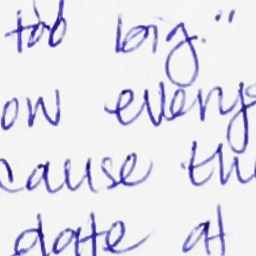 too big."
ow every
cause the
date at